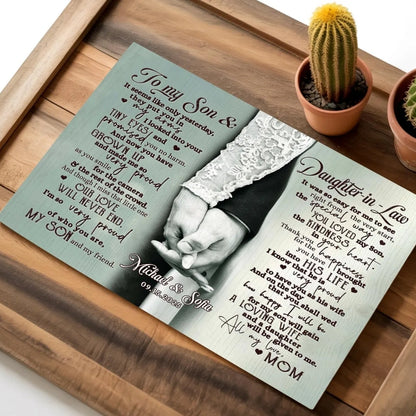 To my Son &
It seems like only yesterday,
they put you in
my arms
I looked into your
TINY EYES and
promised you no harm.
And now you have
GROWN UP
and made me so
very proud
as you smile
for the camera
& the rest of the crowd.
And though I miss that little one
OUR LOVE
WILL NEVER END.
I'm so very proud
of who you are,
MY SON and my friend.
Michael & Sofia
09.15.2025
Daughter-in-Law
It was so easy for me to see
the special way
YOU LOVED my Son.
the KINDNESS
in your heart.
you have brought
INTO HIS LIFE
I know that he is
very proud
to have you as his wife
And on the day
that you shall wed
how happy I will be
my son will gain
A LOVING WIFE
and a daughter
will be given to me.
All my love,
MOM